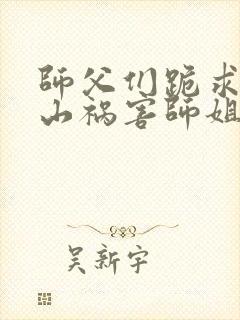 師父们跪求
山祸害師姐
吴新宇